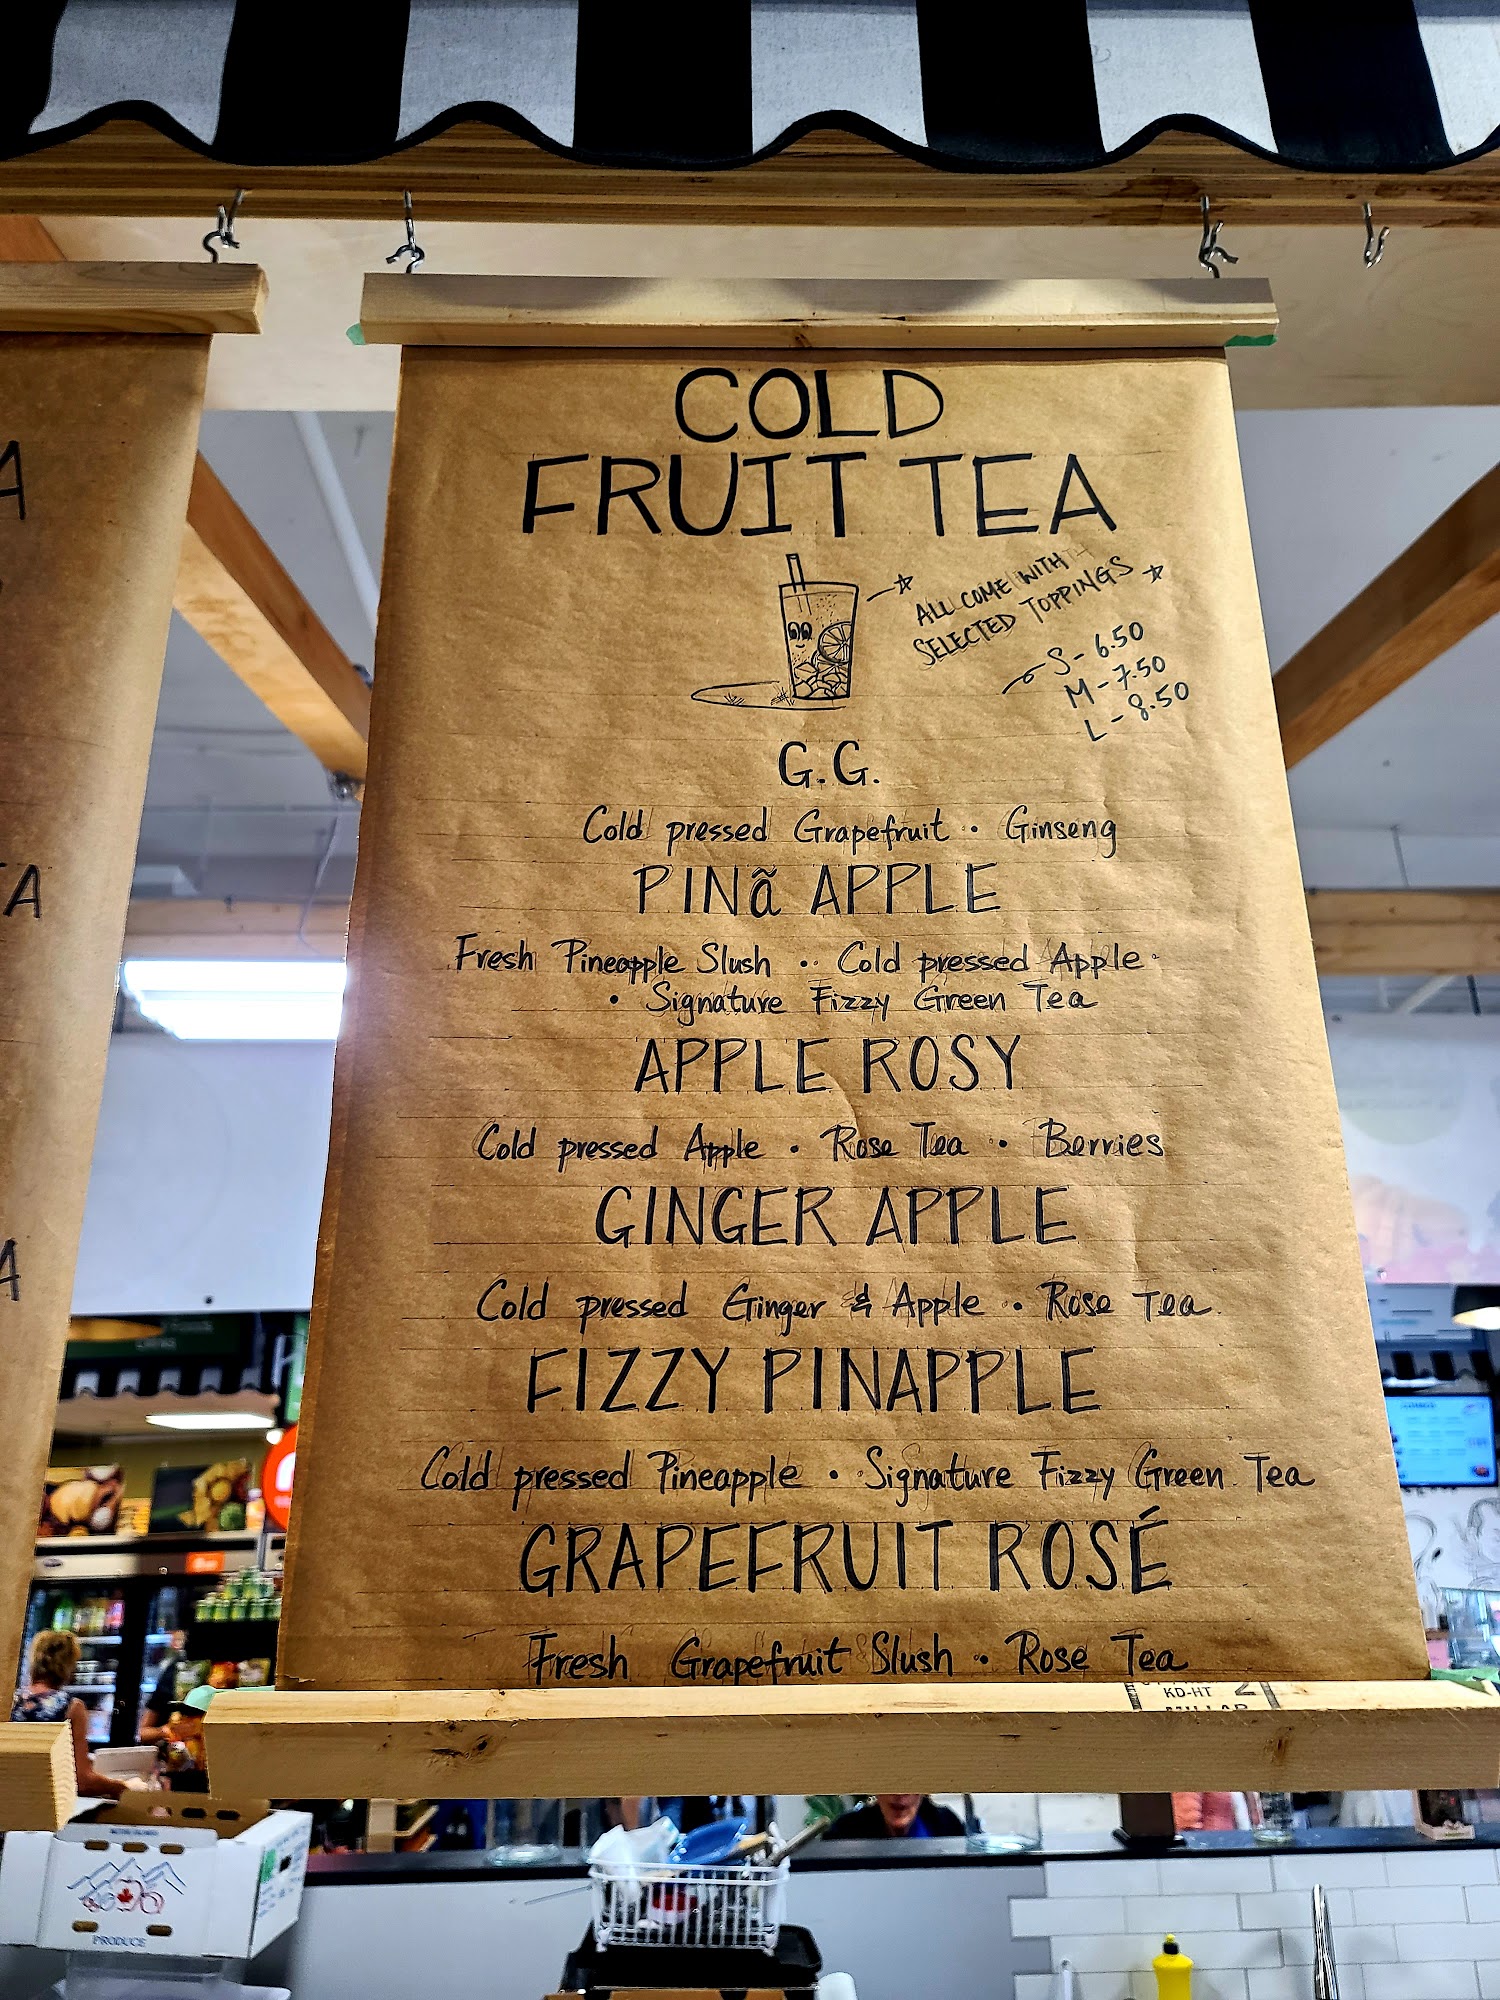 COLD
FRUIT TEA
ALL COME WITH
SELECTED TOPPINGS
S - 6.50
M - 7.50
L - 8.50
G.G.
Cold pressed Grapefruit • Ginseng
PINã APPLE
Fresh Pineapple Slush • Cold pressed Apple
• Signature Fizzy Green Tea
APPLE ROSY
Cold pressed Apple • Rose Tea • Berries
GINGER APPLE
Cold pressed Ginger & Apple • Rose Tea
FIZZY PINAPPLE
Cold pressed Pineapple • Signature Fizzy Green Tea
GRAPEFRUIT ROSÉ
Fresh Grapefruit Slush • Rose Tea
KD-HT 2
PRODUCE